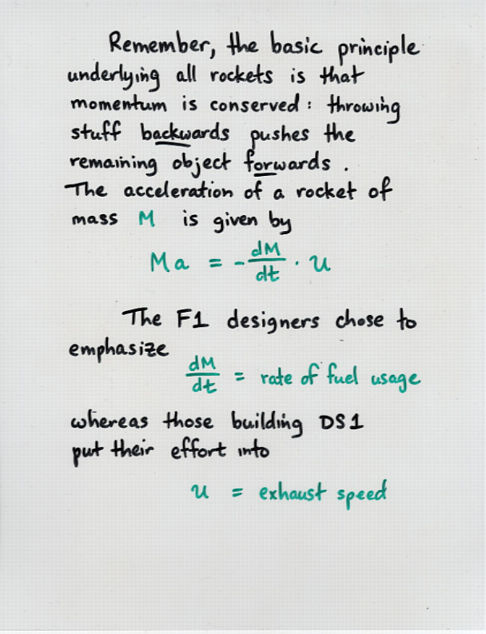 Remember, the basic principle
underlying all rockets is that
momentum is conserved: throwing
stuff backwards pushes the
remaining object forwards.
The acceleration of a rocket of
mass M is given by
Ma = -dM/dt · u
The F1 designers chose to
emphasize
dM/dt = rate of fuel usage
whereas those building DS1
put their effort into
u = exhaust speed